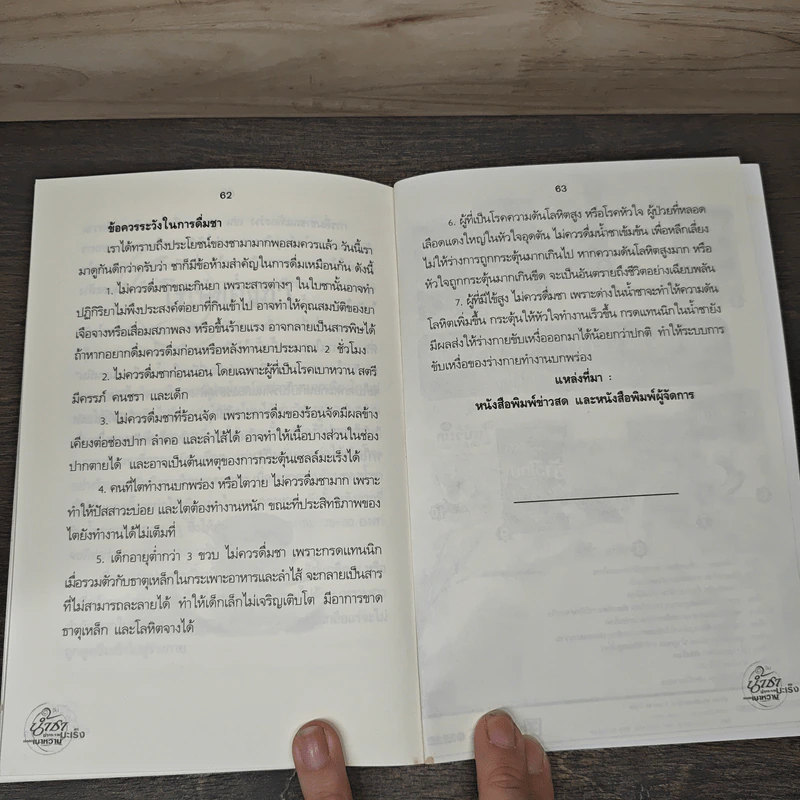 62
ข้อควรระวังในการดื่มชา
เราได้ทราบถึงประโยชน์ของชามามากพอสมควรแล้ว วันนี้เรา
มาดูกันดีกว่าครับว่า ชาก็มีข้อห้ามสำคัญในการดื่มเหมือนกัน ดังนี้
1. ไม่ควรดื่มชาขณะกินยา เพราะสารต่างๆ ในใบชานั้นอาจทำ
ปฏิกิริยาไม่พึงประสงค์ต่อยาที่กินเข้าไป อาจทำให้คุณสมบัติของยา
เจือจางหรือเสื่อมสภาพลง หรือขึ้นร้ายแรง อาจกลายเป็นสารพิษได้
ถ้าหากอยากดื่มควรดื่มก่อนหรือหลังทานยาประมาณ 2 ชั่วโมง
2. ไม่ควรดื่มชาก่อนนอน โดยเฉพาะผู้ที่เป็นโรคเบาหวาน สตรี
มีครรภ์ คนชรา และเด็ก
3. ไม่ควรดื่มชาที่ร้อนจัด เพราะการดื่มของร้อนจัดมีผลข้าง
เคียงต่อช่องปาก ลำคอ และลำไส้ได้ อาจทำให้เนื้อบางส่วนในช่อง
ปากตายได้ และอาจเป็นต้นเหตุของการกระตุ้นเซลล์มะเร็งได้
4. คนที่ไตทำงานบกพร่อง หรือไตวาย ไม่ควรดื่มชามาก เพราะ
ทำให้ปัสสาวะบ่อย และไตต้องทำงานหนัก ขณะที่ประสิทธิภาพของ
ไตยังทำงานได้ไม่เต็มที่
5. เด็กอายุต่ำกว่า 3 ขวบ ไม่ควรดื่มชา เพราะกรดแทนนิก
เมื่อรวมตัวกับธาตุเหล็กในกระเพาะอาหารและลำไส้ จะกลายเป็นสาร
ที่ไม่สามารถละลายได้ ทำให้เด็กเล็กไม่เจริญเติบโต มีอาการขาด
ธาตุเหล็ก และโลหิตจางได้
น้ำชา
เบาหวาน
มะเร็ง
63
6. ผู้ที่เป็นโรคความดันโลหิตสูง หรือโรคหัวใจ ผู้ป่วยที่หลอด
เลือดแดงใหญ่ในหัวใจอุดตัน ไม่ควรดื่มน้ำชาเข้มข้น เพื่อหลีกเลี่ยง
ไม่ให้ร่างการถูกกระตุ้นมากเกินไป หากความดันโลหิตสูงมาก หรือ
หัวใจถูกกระตุ้นมากเกินขีด จะเป็นอันตรายถึงชีวิตอย่างเฉียบพลัน
7. ผู้ที่มีไข้สูง ไม่ควรดื่มชา เพราะด่างในน้ำชาจะทำให้ความดัน
โลหิตเพิ่มขึ้น กระตุ้นให้หัวใจทำงานเร็วขึ้น กรดแทนนิกในน้ำชายัง
มีผลส่งให้ร่างกายขับเหงื่อออกมาได้น้อยกว่าปกติ ทำให้ระบบการ
ขับเหงื่อของร่างกายทำงานบกพร่อง
แหล่งที่มา :
หนังสือพิมพ์ข่าวสด และหนังสือพิมพ์ผู้จัดการ
น้ำชา
เบาหวาน
มะเร็ง